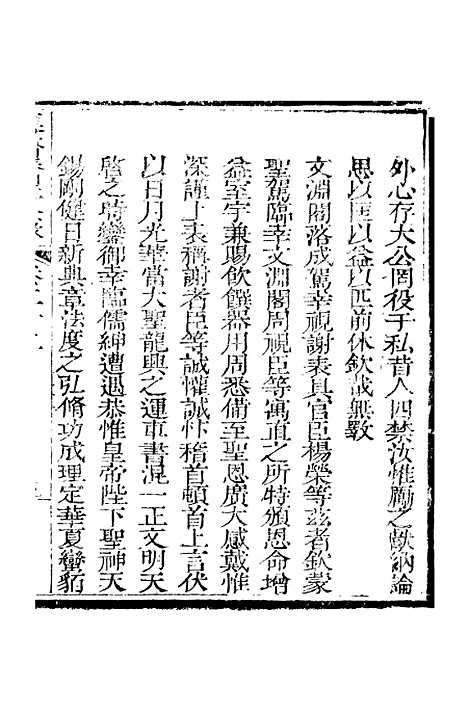 外心存大公罔役于私昔人四禁汝惟勵之獻納論
思以匡以益以匹前休欽哉無斁
文淵閣落成駕幸視謝表具官臣楊榮等茲者欽蒙
聖駕臨幸文淵閣周視臣等寓直之所特頒恩命增
益室宇兼賜飲饌器用周悉備至聖恩廣大感戴惟
深謹上表稱謝者臣等誠懽誠忭稽首頓首上言伏
以日月光華當大聖龍興之運車書混一正文明天
啓之時鑾御幸臨儒紳遭遇恭惟皇帝陛下聖神天
錫剛健日新典章法度之弘脩功成理定華夏蠻貊